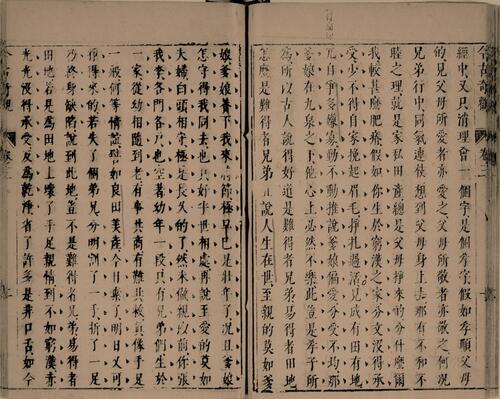 今古奇觀 卷三
經中又只消理會一個字是個孝字假如孝順父母
的見父母所愛者亦愛之父母所敬者亦敬之何况
兄弟行中同氣連枝想到父母身上去那有不和不
睦之理就是家私田產總是父母掙來的分什麼爾
我較甚麼肥瘠假如你生於窮漢之家分文沒得承
受少不得自家挽起眉毛掙扎過活見成有田有地
兀自爭多嫌寡動不動推說爹娘偏愛分受不均那
爹娘在九泉之下他心上必然不樂此豈是孝子所
為所以古人說得好道是難得者兄弟易得者田地
怎麼是難得者兄弟且說人生在世至親的莫如爹
娘爹娘養下我來時節極早已是壯年了况且爹娘
怎守得我同去也只好半世相處再說至愛的莫如
夫婦白頭相守極是長久的了然未做親以前你張
我李各門各戶也空著幼年一段只有兄弟們生於
一家從幼相隨到老有事共商有難共救真像手足
一般何等情誼譬如良田美產今日棄了明日又可
掙得來的若失了個弟兄分明割了一手折了一足
乃終身缺陷說到此地豈不是難得者兄弟易得者
田地若是為田地上壞了手足親情到不如窮漢赤
光光沒得承受反為乾淨省了許多是非口舌如今